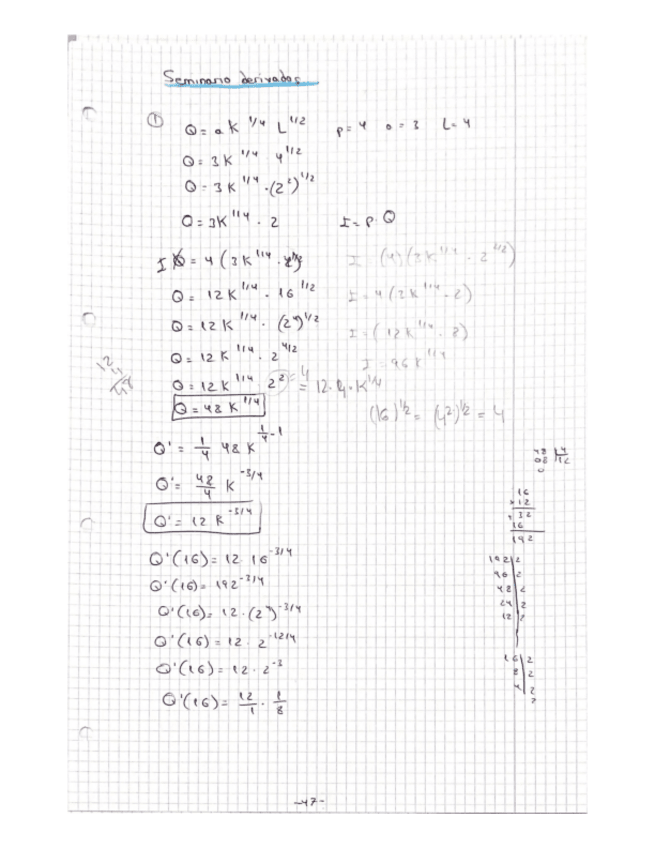 Seminario derivadas
① Q = a K^1/4 L^1/2 p = 4 a = 3 L = 4
Q = 3K^1/4 · 4^1/2
Q = 3K^1/4 · (2²)^1/2
Q = 3K^1/4 · 2 I = p · Q
I = 4 (3K^1/4 · 
Q = 12K^1/4 · 16^1/2
Q = 12K^1/4 · (2⁴)^1/2
Q = 12K^1/4 · 2^4/2
Q = 12K^1/4 2² = 4 = 12 · 4 · K^1/4
Q = 48K^1/4
I = 4 (3K^1/4 · 2)
I = (12K^1/4 · 2)
I = 96K^1/4
(16)^1/2 = (4²)^1/2 = 4
Q' = 1/4 48K^1/4-1
Q' = 48/4 K^-3/4
Q' = 12K^-3/4
Q'(16) = 12 · 16^-3/4
Q'(16) = 192^-3/4
Q'(16) = 12 · (2⁴)^-3/4
Q'(16) = 12 · 2^-12/4
Q'(16) = 12 · 2^-3
Q'(16) = 12/1 · 1/8
48 4
08 12
0
16
×12
32
16
192
192 2
96 2
48 2
24 2
12 2
16 2
8 2
4 2
2
-47-